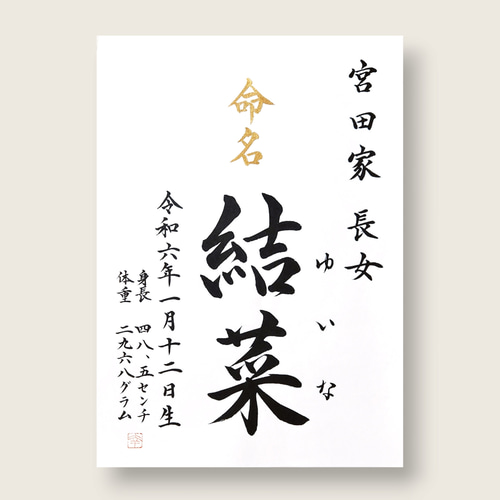 宮田家 長女
命名
結菜
ゆいな
令和六年一月十二日生
身長 四八、五センチ
体重 二九六八グラム